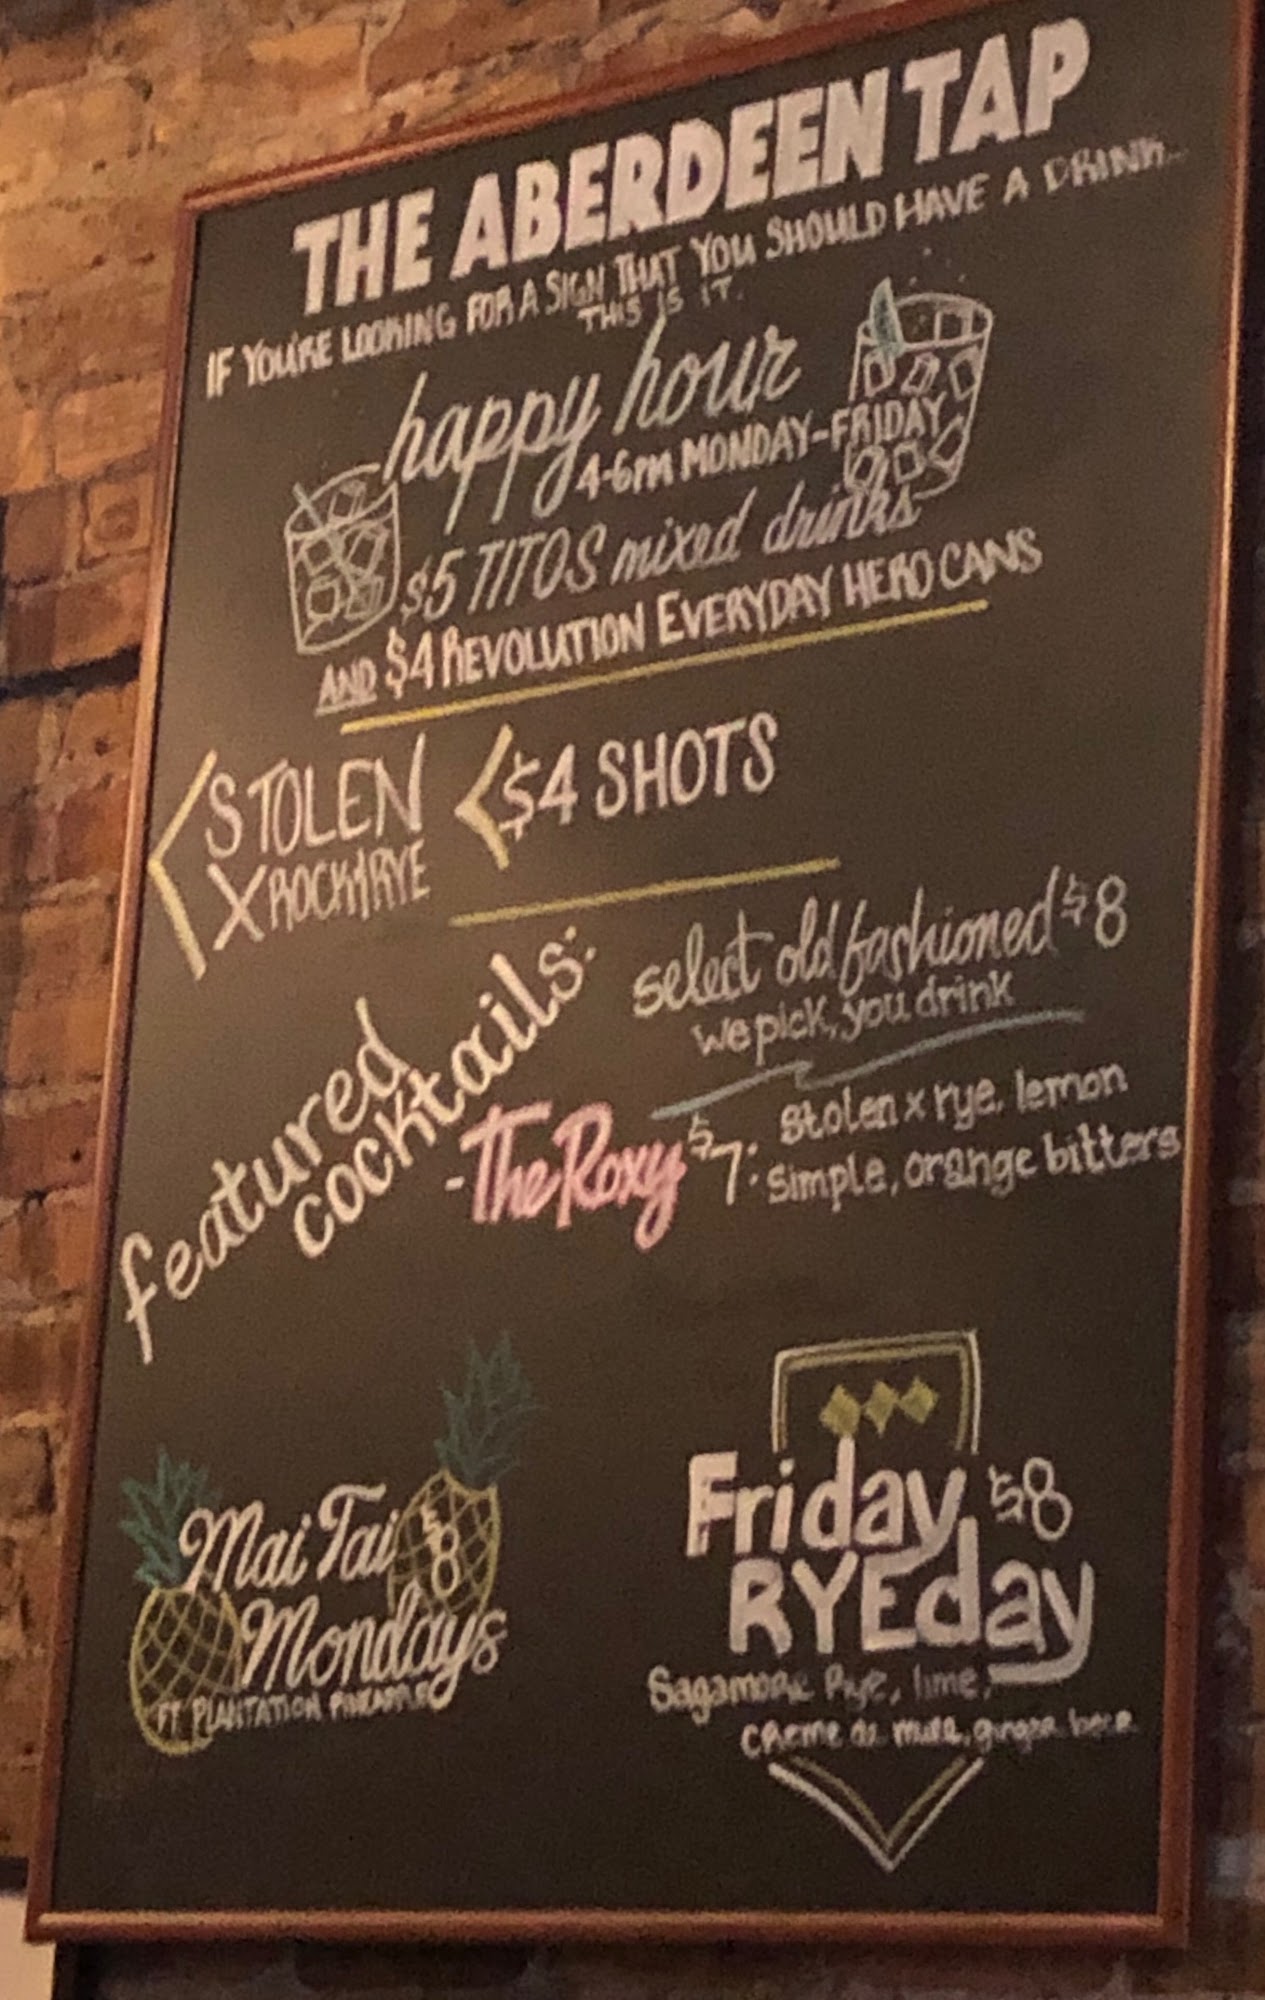 THE ABERDEEN TAP
IF YOU'RE LOOKING FOR A SIGN THAT YOU SHOULD HAVE A DRINK...
THIS IS IT.
happy hour
4-6PM MONDAY-FRIDAY
$5 TITOS mixed drinks
AND $4 REVOLUTION EVERYDAY HERO CANS
STOLEN
X ROCK & RYE
$4 SHOTS
featured
cocktails:
select old fashioned $8
we pick, you drink
-The Roxy $7:
Stolen x rye, lemon
simple, orange bitters
Mai Tai $8
Mondays
FT. PLANTATION PINEAPPLE
Friday $8
RYEday
Sagamore Rye, lime,
creme de mure, ginger beer